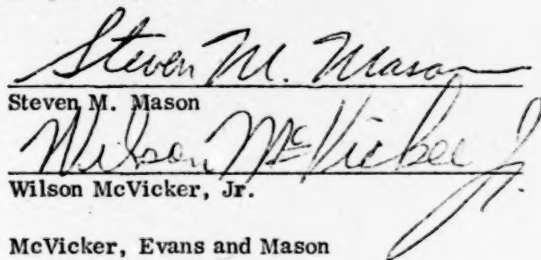 Steven M. Mason
Steven M. Mason
Wilson McVicker Jr.
Wilson McVicker, Jr.
McVicker, Evans and Mason